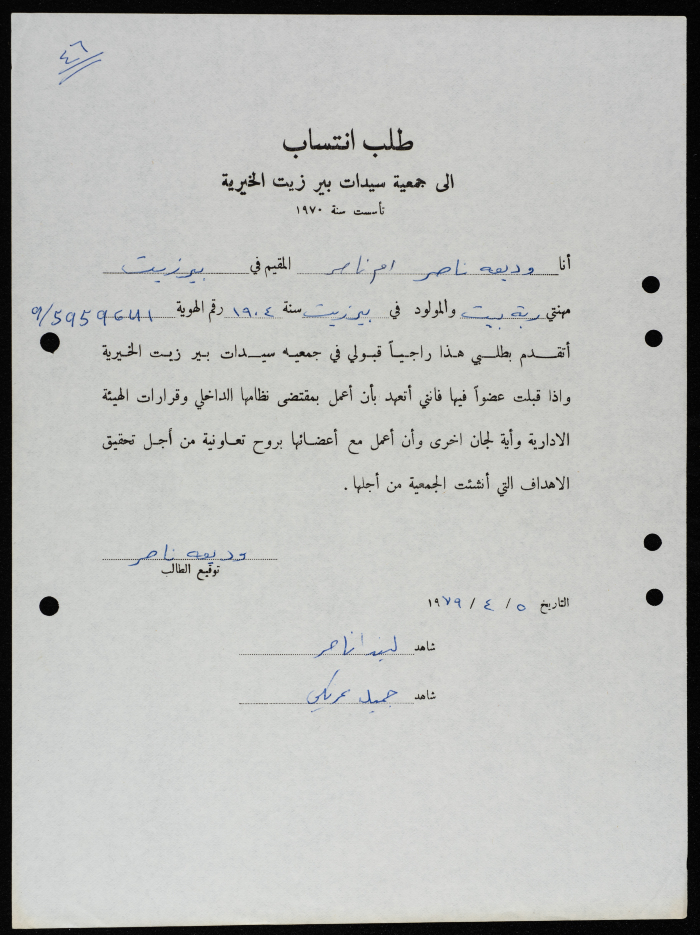 ٤٦
طلب انتساب
الى جمعية سيدات بير زيت الخيرية
تأسست سنة ١٩٧٠
أنا وديعه ناصر ام ناصر المقيم في بيرزيت
مهنتي ربة بيت والمولود في بيرزيت سنة ١٩٠٤ رقم الهوية
أتقدم بطلبي هذا راجياً قبولي في جمعيه سيدات بير زيت الخيرية
واذا قبلت عضواً فيها فانني أتعهد بأن أعمل بمقتضى نظامها الداخلي وقرارات الهيئة
الادارية وأية لجان اخرى وأن أعمل مع أعضائها بروح تعاونية من أجل تحقيق
الاهداف التي أنشئت الجمعية من أجلها .
وديعه ناصر
توقيع الطالب
التاريخ ٥ / ٤ / ١٩٧٩
شاهد ليندا ناصر
شاهد جميل